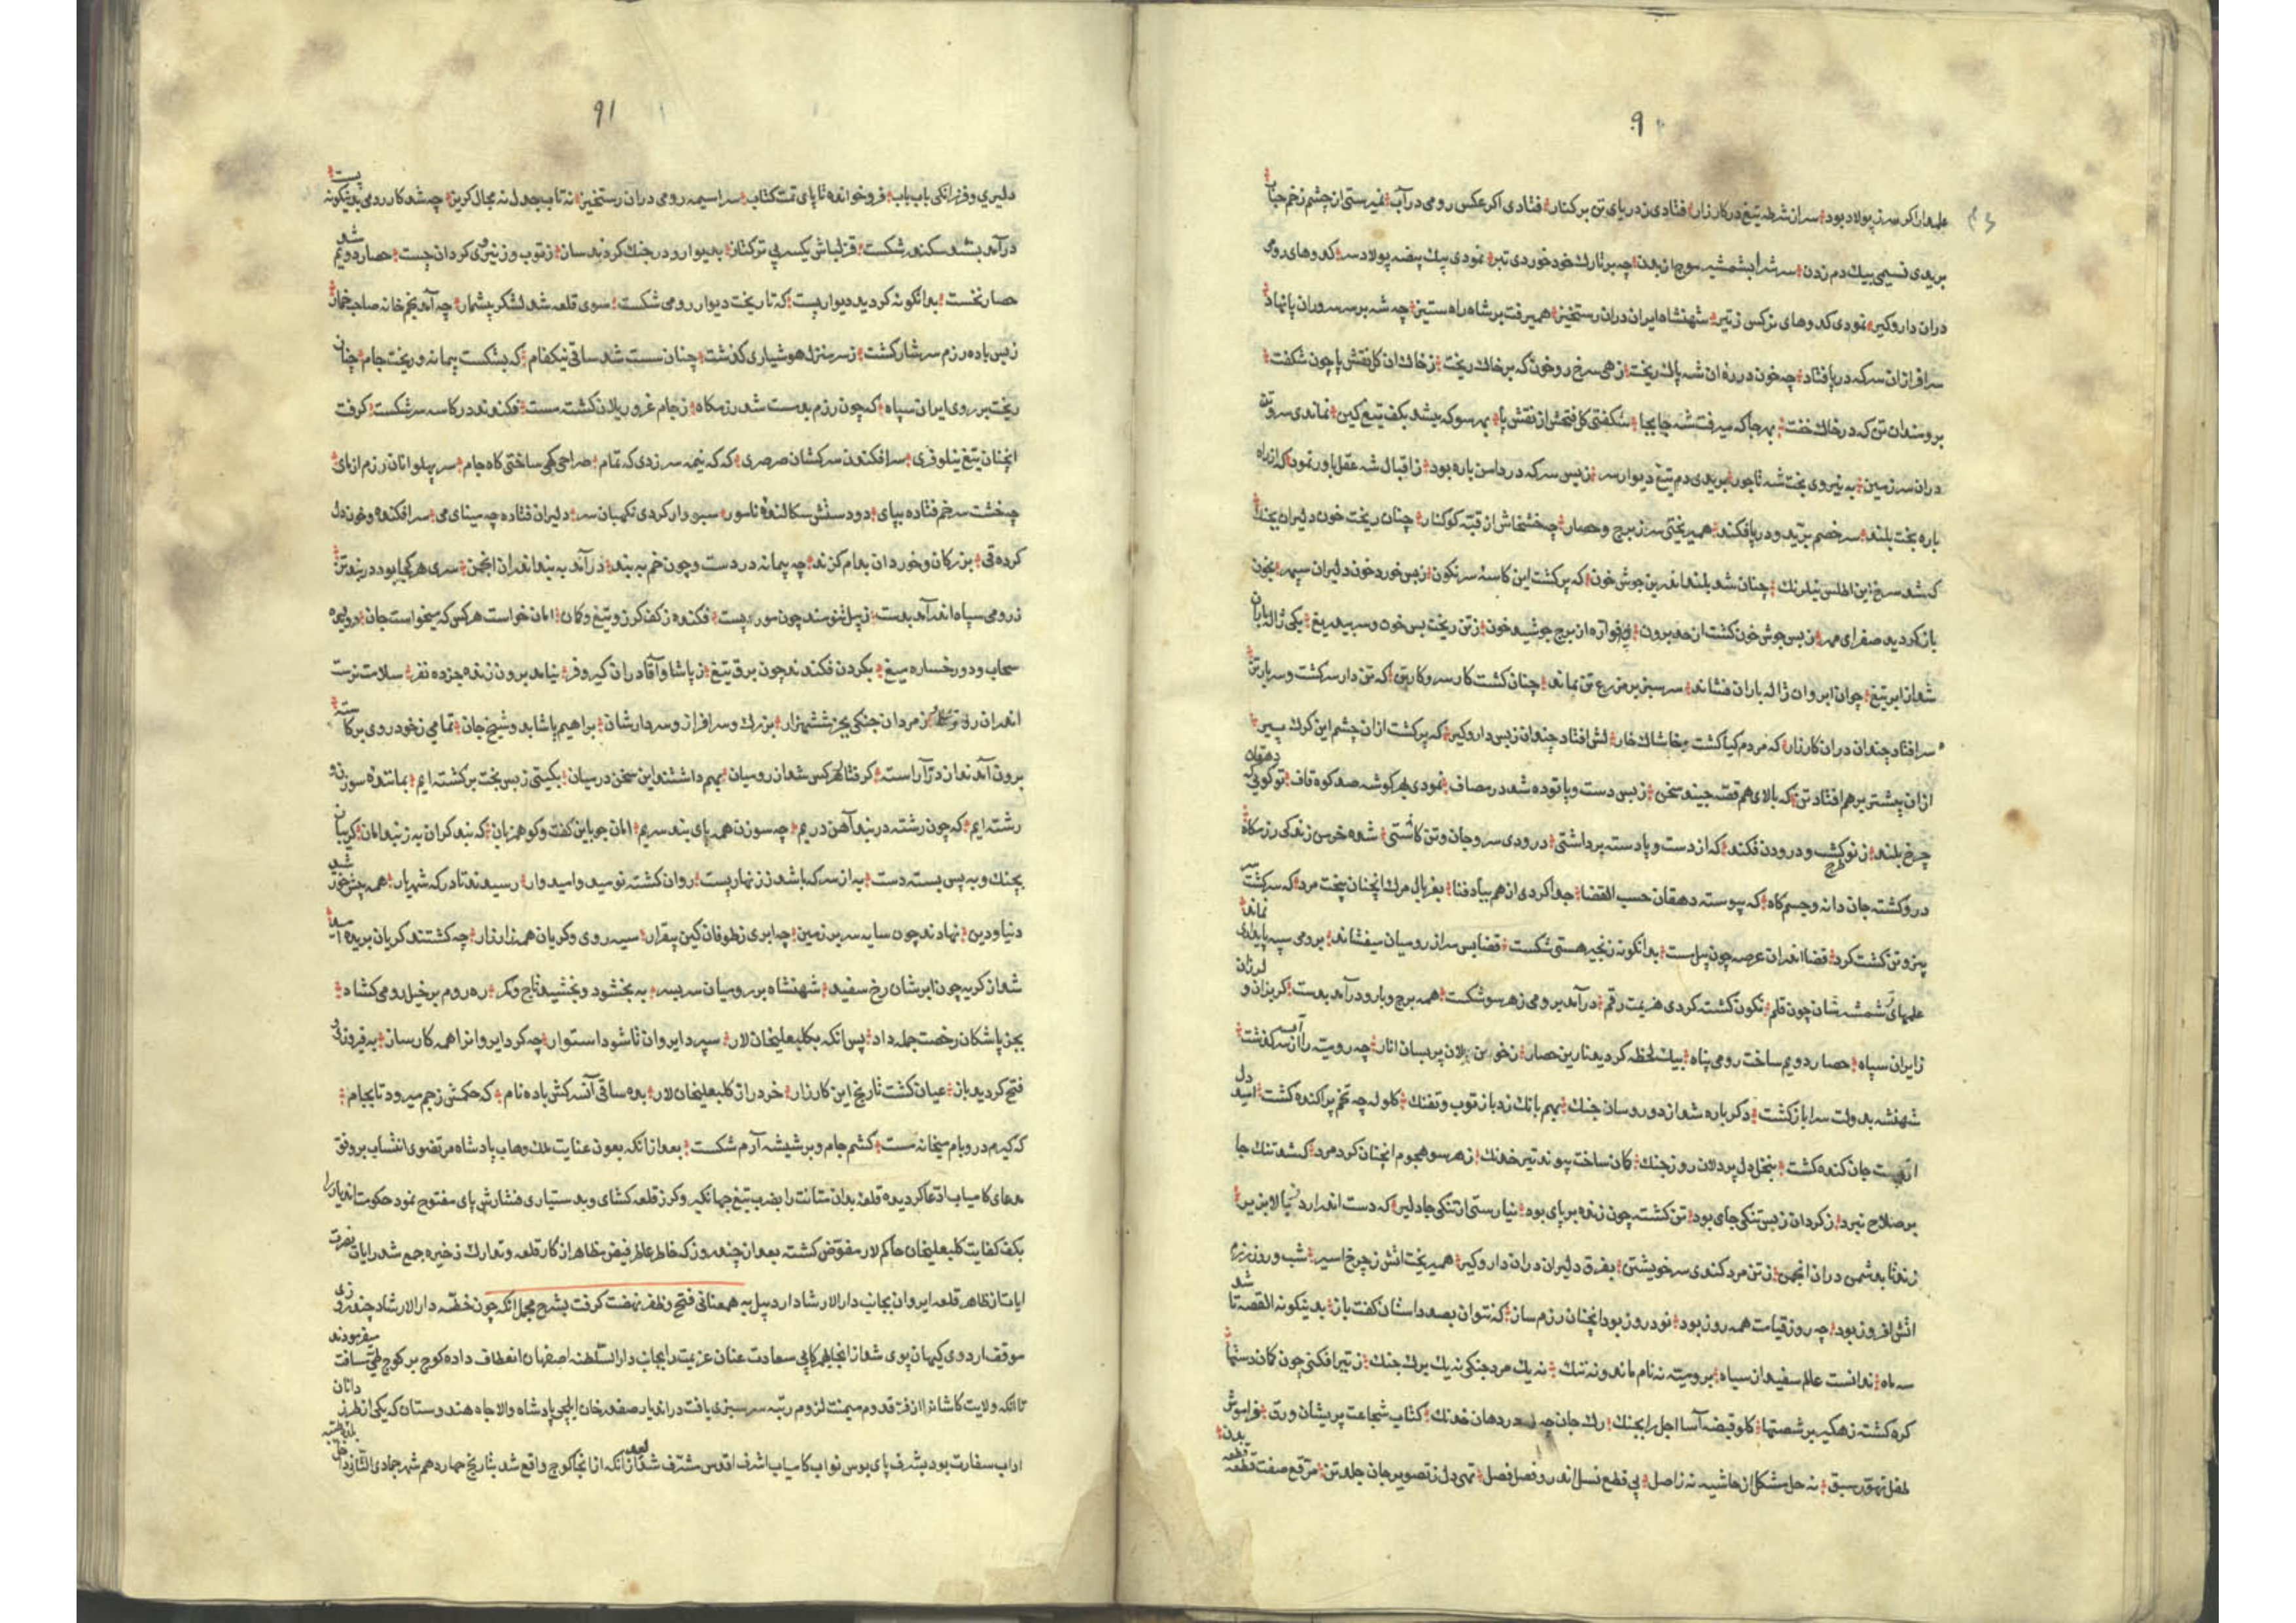 ۹۰
علمدار اگر سر ز پولاد بود سران شرطه تیغ در کارزار فتادی ز دریای تن بر کنار فتادی اکر عکس رومی در آب نمیرستی از چشم زخم حباب
بریدی نسیمی بیك دم زدن سر شیر بشمشیر موج از بدن چه بر تارك خود خوردی تبر نمودی بیك بیضه پولاد سر کدوهای رومی
دران داروکیر نمودی کدوهای نرکس ز تیر شهنشاه ایران دران رستخیز همیرفت بر شاه راه ستیز چه شه بر سر سروران پا نهاد
سرافراز ان سر که در پا فتاد چه خون در ره ان شه پاك ریخت زهی سرخ رو خون که بر خاك ریخت ز خاك ان کل نقش پا چون شکفت
برومند ان تن که در خاك خفت بهر جا که میرفت شه جابجا شکفتی کل فتحش از نقش پا بهر سو که میشد بکف تیغ کین نماندی سر و تن
دران سرزمین به نیروی بخت شه تاجور بریدی دم تیغ دیوار سر ز بس سر که در دامن باره بود ز اقبال شه عقل باور نمود که از راه
باره بخت بلند سر خصم برید و در پا فکند همیریختی سر ز برج و حصار چه خشخاش از قبه کوکنار چنان ریخت خون دلیران بجنك
که شد سرخ این اطلس نیلرنك چنان شد بلند اندرین جوش خون که پر کشت این کاسه سرنکون ز بس خورد خون دلیران سپهر بخون
باز کردید صفرای مهر ز بس جوش خون کشت از حد برون ز فواره از برج جوشید خون ز تن ریخت بس خون و سر بیدریغ یکی ژاله باران
شد از ابر تیغ چو ان ابر وان ژاله باران فشاند سر سبز بر مزرع تن نماند چنان کشت کار سر و کار تن که تن دار سر کشت و سر بار تن
سر افتاد چندان دران کارزار که مردم کیا کشت خاشاك خار لش افتاد چندان ز بس داروکیر که پر کشت ازان چشم این کرك پیر
ازان بیشتر بر هم افتاد تن که بالای هم قصه چیند سخن ز بس دست و پا توده شد در مصاف نمودی بهر کوشه صد کوه قاف تو کویی که دهقان
چرخ بلند ز نو کشت و درودن فکند که از دست و پا دسته برداشتی درودی سر و جان و تن کاشتی شده خرمن زندکی رزمکاه
درو کشته جان دانه و جسم کاه که پیوسته دهقان حسب القضا جدا کردی از هم بباد فنا بغربال مرك انچنان بیخت مرد که سر کشت سر
بیز و تن کشت کرد قضا اندران عرصه چون پیل مست بدانکونه زنجیر هستی شکست قضا بس سر از رومیان میفشاند برومی سپه پایداری نماند
علمهای شمشیرشان چون قلم نکون کشته کردی هزیمت رقم درآمد برومی ز هر سو شکست همه برج و بارو درآمد بدست کریزان و لرزان
ز ایران سپاه حصار دویم ساخت رومی پناه بیك لحظه کردید نارین حصار ز خون یلان پر بسان انار چه رومیه را آب از سر کذشت
شهنشه بدولت سرا باز کشت دکر باره شد از دو رو ساز جنك بهم بانك زد باز توب و تفنك کلوله چه تخم پراکنده کشت امید دل
از جان کنده کشت بنخل دل پردلان روز جنك کمان ساخت پیوند تیر خدنك ز هر سو هجوم انچنان کرد مرد که شد تنك جا
بر صلاح نبرد ز کردان ز بس تنکی جای بود تن کشته چون زنده بر پای بود نیارستی از تنکی جا دلیر که دست اندارد ز بالا بزیر
زند تا بدشمن دران انجمن ز تن مرد کندی سر خویشتن بفرق دلیران دران داروکیر همیریخت اتش ز چرخ اسیر شب و روز برزم
اتش افروز بود چه روز قیامت همه روز بود نود روز بود انچنان رزم ساز که نتوان بصد داستان کفت باز بدینکونه القصه تا شد
سه ماه ندانست عالم سفید از سیاه برومیه نه نام ماند و نه ننك نه یك مرد جنکی نه یك برك جنك ز تیر افکنی چون کمان دستها
کره کشته زهکیر بر شصتها کلو قبضه آسا اجل را بچنك رك جان چه در دهان خدنك کتاب شجاعت پریشان ورق فراموش
طفل تهور سبق نه حل مشکل از حاشیه نه ز اصل پی قطع نسل اندرو فصل فصل تهی دل ز تصویر جان جلد تن مرقع صفت قطعه قطعه بدن
۹۱
دلیری و فرزانکی باب باب فرو خوانده تا پای تمت کتاب سراسیمه رومی دران رستخیز نه تاب جدل نه مجال کریز چه شد کار رومی بدینکونه پست
درآمد بسد سکندر شکست قزلباش یکسر پی ترکتاز بدیوار و در جنك کردند ساز ز توب و ز نیروی کردان چست حصار دویم شد
حصار نخست بدانکونه کردید دیوار پست که تا ریخت دیوار رومی شکست سوی قلعه شد لشکر بیشمار چه آمد بخم خانه صاحب خمار
ز بس باده رزم سرشار کشت ز سر منزل هوشیاری کذشت چنان مست شد ساقی نیکنام که بشکست پیمانه و ریخت جام چنان
ریخت بر روی ایران سپاه که چون رزم بدمست شد رزمکاه ز جام غرور یلان کشته مست فکندند در کاسه سر شکست کرفت
انچنان تیغ نیلوفری سر افکندن سرکشان صرصری که که نیمه سر زدی که تمام صراحی کهی ساختی کاه جام سر پهلوانان رزم ازمای
چه خشت سر خم فتاده بپای دو دستش سکالنده ناسور سبو وار کردی نکهبان سر دلیران فتاده چه مینای می سر افکنده و خون دل
کرده قی بزرکان و خوردان بدام کزند چه پیمانه در دست و چون خم به بند درآمد به بند اندران انجمن سری هر کجا بود در بند تن
ز رومی سپاه اندرآمد بدست ز پیل تنومند چون مور پست فکنده ز کف کرز و تیغ و کمان امان خواست هر کس که میخواست جان دریده
سحاب و دو رخساره میغ بکردن فکندند چون برق تیغ ز پاشا و آقا دران کیر و فر نیامد برون زنده جز ده نفر سلامت نرست
اندران روز ز مردان جنکی بجز ششهزار بزرك و سرافراز و سردارشان براهیم پاشا بد و شیخ جان تمامی ز خود روی برکاسته
برون آمدند از در آراسته کرفتار هر کس شد از رومیان بهم داشتند این سخن در میان بکیتی ز بس بخت برکشته ایم بمانند سوزن و
رشته ایم که چون رشته در بند آهن دریم چه سوزن همه پای بند سریم امان جو باین کفت و کو همزبان که بند کران به ز بند امان کریبان
بچنك و به پس بسته دست به از سر که باشد ز زنهار پست روان کشته نومید و امیدوار رسیدند تا درکه شهریار همه پیش خورشید
دنیا و دین نهادند چون سایه سر بر زمین چه ابری ز طوفان کین بیقرار سیه روی و کریان همه زار زار چه کشتند کریان بریده امید
شد از کریه چون ابرشان رخ سفید شهنشاه بر رومیان سربسر به بخشود و بخشید تاج و کمر ره روم بر خیل رومی کشاد
بجز پاشکان رخصت جمله داد پس انکه بکلبعلیخان لار سپرد ایروان تا شود استوار چه کرد ایروانرا همه کار ساز به فیروزی و
فتح کردید باز عیان کشت تاریخ این کارزار خرد راز کلبعلیخان لار بده ساقی آتش کش باده نام که حکمش ز جم میرود تا بجام
که کیرم در و بام میخانه مست کشم جام و بر شیشه آرم شکست بعد از انکه بعون عنایت ملك وهاب پادشاه مرتضوی انتساب بر وفق
مدعای کامیاب ادعا کردیده قلعه بدان متانت را بضرب تیغ جهانکیر و کرز قلعه کشای و بدستیاری فشارش پای مفتوح نمود حکومت اندیار را
بکف کفایت کلبعلیخان حاکم لار مفوض کشته بعد از چند روز که خاطر عاطر فیض مظاهر از کار قلعه و تدارك ذخیره جمع شد رایات نصرت
ایات از ظاهر قلعه ایروان بجانب دار الارشاد اردبیل به همعنانی فتح و ظفر نهضت کرفت بشرح مجمل انکه چون خطه دار الارشاد چند روزی
موقف اردوی کیهان پوی شد از انجا همرکابی سعادت عنان عزیمت را بجانب دار السلطنه اصفهان انعطاف داده کوچ بر کوچ طی مسافت میفرمودند
تا انکه ولایت کاشانرا از فر قدوم میمنت لزوم رتبه سرسبزی یافت دران دیار صفدر خان ایلچی پادشاه والا جاه هندوستان که یکی از طرز دانان
اداب سفارت بود بشرف پای بوس نواب کامیاب اشرف اقدس مشرف شد بعد از انکه از انجا کوچ واقع شد بتاریخ چهاردهم شهر جمادی الثانی